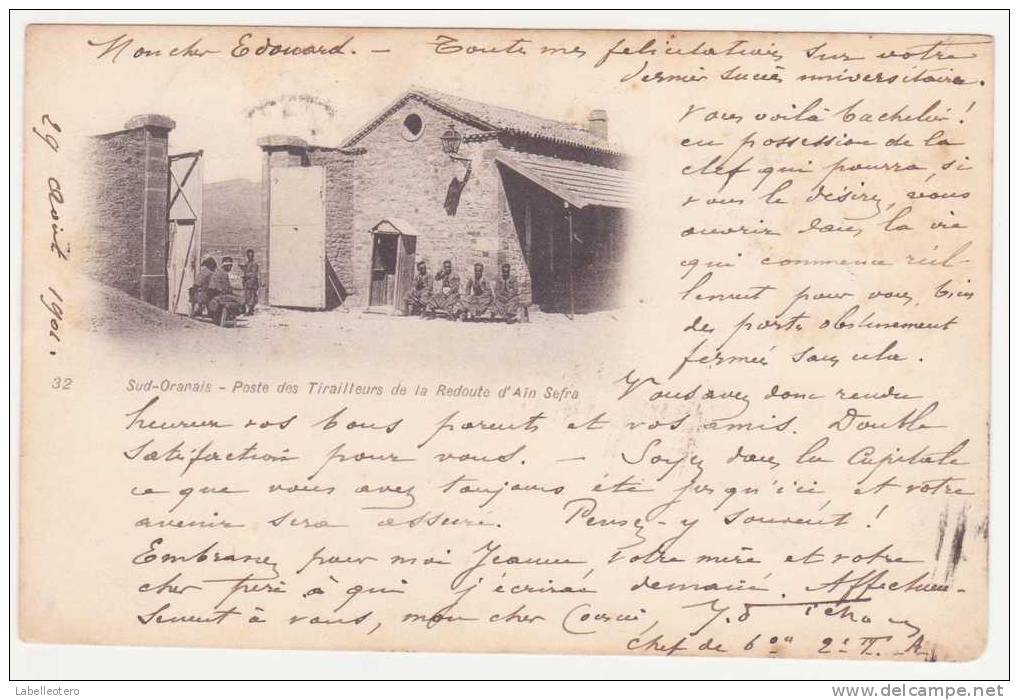 Mon cher Edouard. – Toutes mes felicitations sur votre
dernier succès universitaire.
Vous voilà bachelier!
en possession de la
clef qui pourra, si
vous le désirez, vous
ouvrir dans la vie
qui commence réel-
lement pour vous, bien
des portes obstinément
fermées sans cela.
29 Août 1901.
32 Sud-Oranais – Poste des Tirailleurs de la Redoute d'Aïn Sefra
Vous avez donc rendu
heureux vos bons parents et vos amis. Double
satisfaction pour vous. – Soyez dans la Capitale
ce que vous avez toujours été jusqu'ici, et votre
avenir sera assuré. Pensez-y souvent!
Embrassez pour moi Jeanne, votre mère et votre
cher père à qui j'écrirai demain. Affectueu-
sement à vous, mon cher Cousin,
Chef de 2e T. A.
Labelleotero
www.delcampe.net